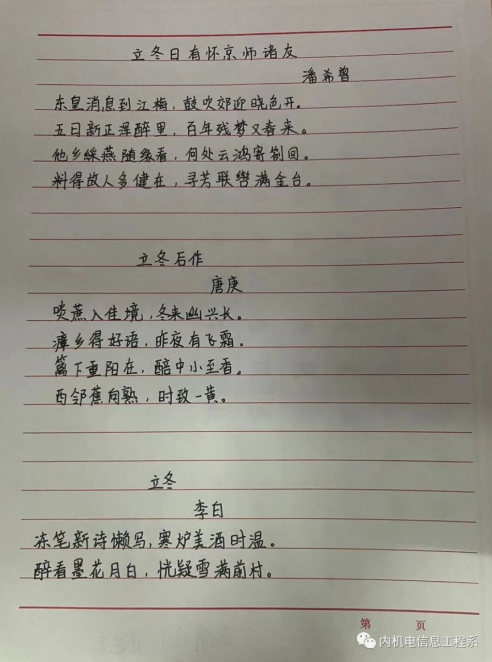 立冬日有怀京师诸友
潘希曾
东皇消息到江梅，鼓吹郊迎晓色开。
五日新正浑醉里，百年残梦又春来。
他乡綵燕随缘看，何处云鸿寄劄回。
料得故人多健在，寻芳联辔满金台。
立冬后作
唐庚
啖蔗入佳境，冬来幽兴长。
瘴乡得好语，昨夜有飞霜。
篱下重阳在，醅中小至香。
西邻蕉向熟，时致一黄。
立冬
李白
冻笔新诗懒写，寒炉美酒时温。
醉看墨花月白，恍疑雪满前村。
第 页
内机电信息工程系